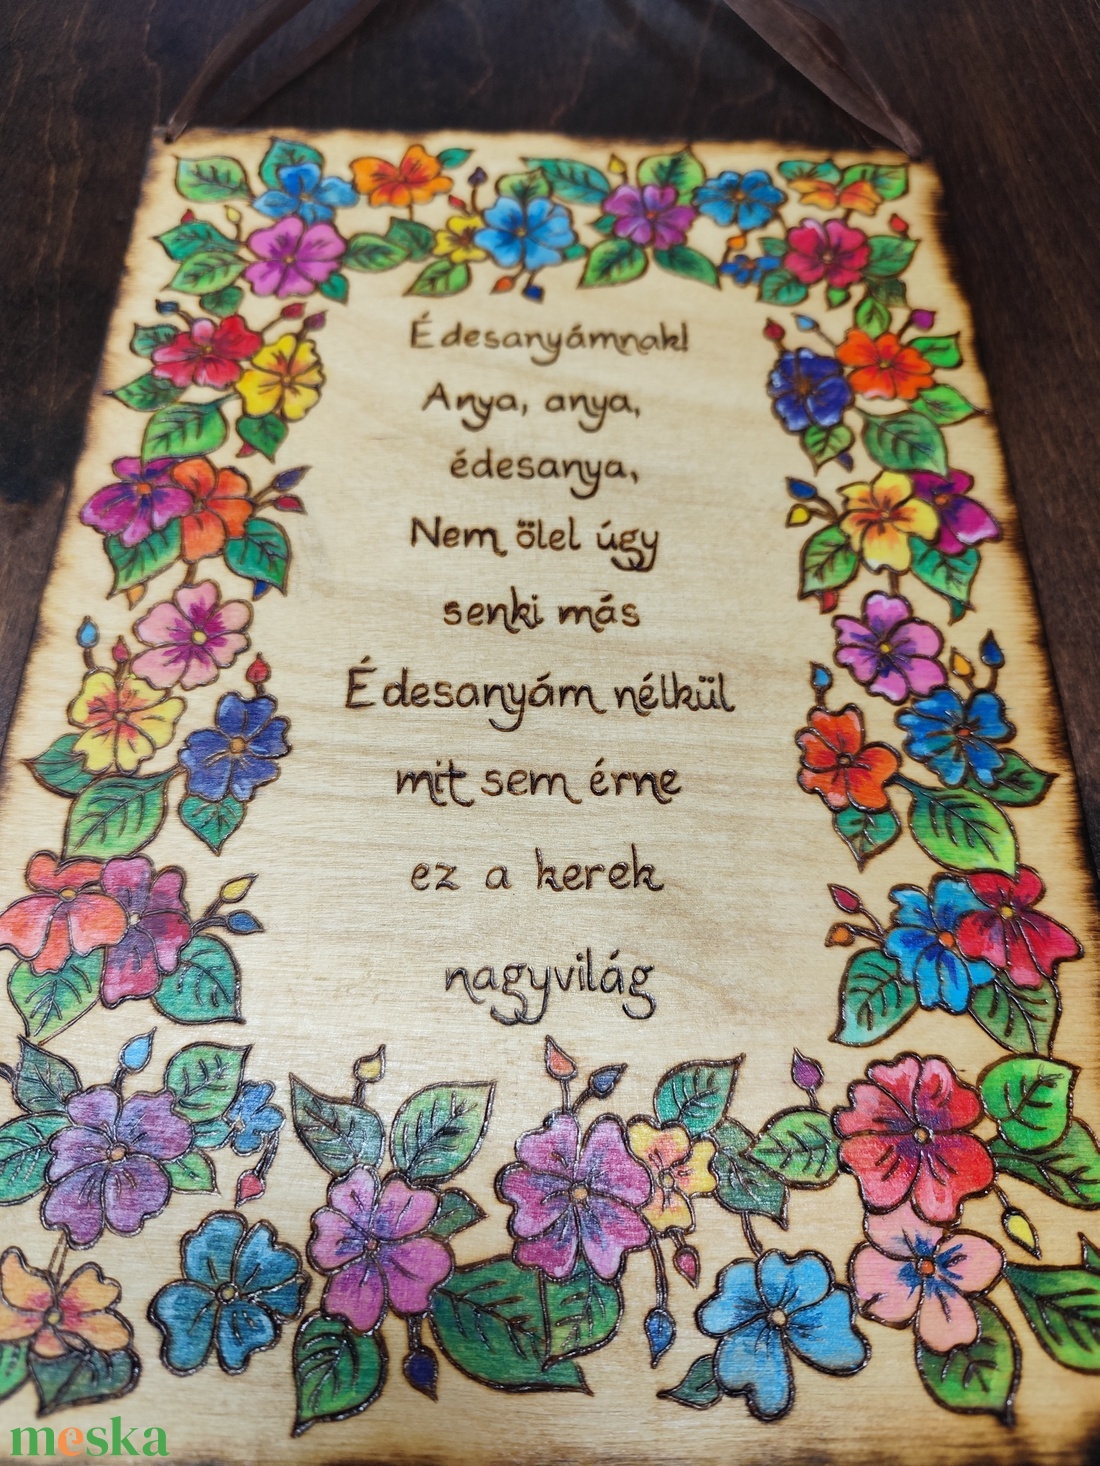 Édesanyámnak!
Anya, anya,
édesanya,
Nem ölel úgy
senki más
Édesanyám nélkül
mit sem érne
ez a kerek
nagyvilág
meska